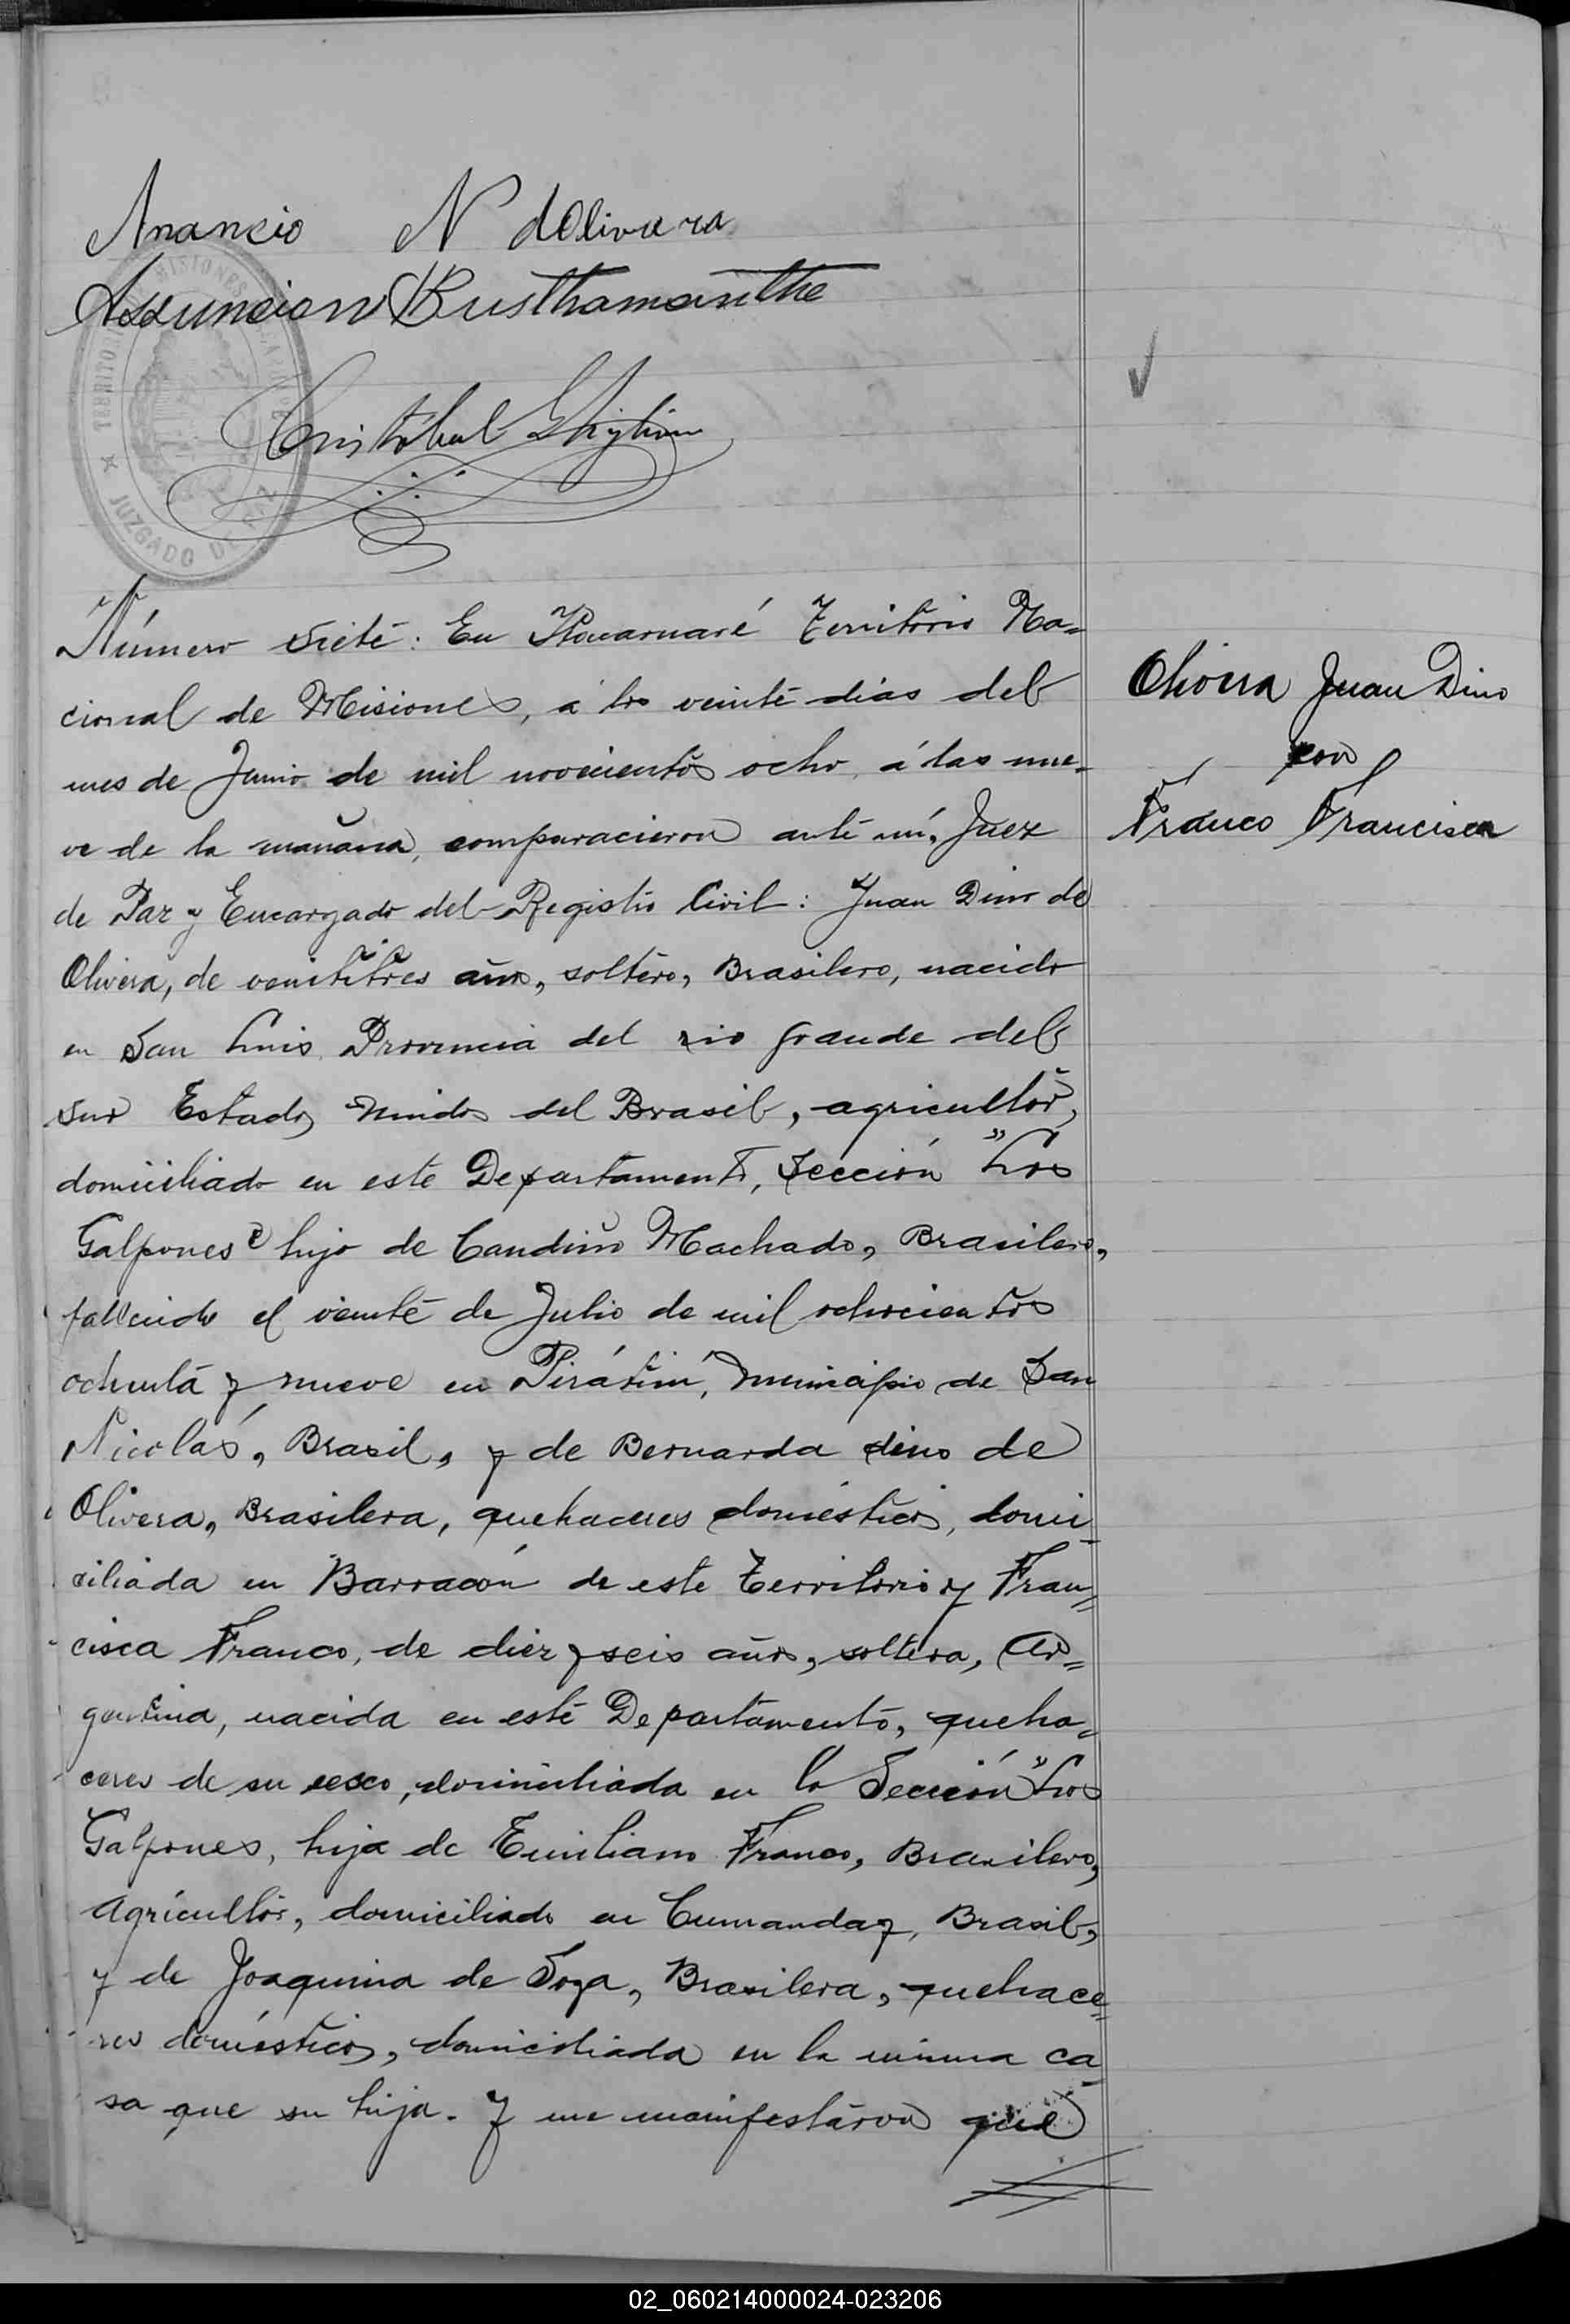 Anancio N dOlivera
Assuncion Busthamanthe
Cristóbal
TERRITORIO MISIONES
JUZGADO DE PAZ
Número siete: En Territorio Na=
cional de Misiones, á los veinte dias del
mes de Junio de mil novecientos ocho, á las nue-
ve de la mañana, comparacieron ante mí, Juez
de Paz y Encargado del Registro Civil: Juan Dino de
Olivera, de veintitres años, soltero, Brasilero, nacido
en San Luis Provincia del rio grande del
sur Estados Unidos del Brasil, agricultor,
domiciliado en este Departamento, Sección "Los
Galpones" hijo de Candino Machado, Brasilero,
fallecido el veinte de Julio de mil ochocientos
ochenta y nueve en Pirátiní, municipio de San
Nicolás, Brasil, y de Bernarda dino de
Olivera, Brasilera, quehaceres domésticos, domi-
ciliada en Barracón de este Territorio y Fran=
cisca Franco, de diez y seis años, soltera, Ar=
gentina, nacida en este Departamento, queha=
ceres de su sexo, domiciliada en la Sección "Los
Galpones, hija de Emiliano Franco, Brasilero,
Agricultor, domiciliado en Cumanday, Brasil,
y de Joaquina de Soza, Brasilera, quehace=
res domésticos, domiciliada en la misma ca-
sa que su hija. Y me manifestaron que
Olivera Juan Dino
con
Franco Francisca
02_060214000024-023206